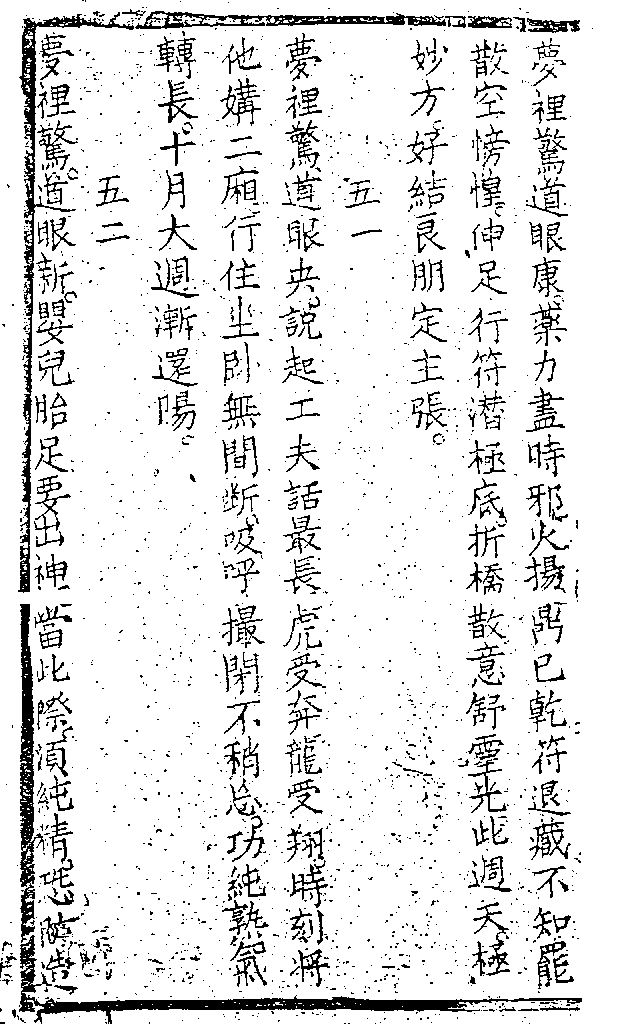 夢裡驚道眼康藥力盡時邪火揚鼎已乾符退藏不知罷
散空愰惶。伸足行符潜極底。折橋散意舒靈光此週天極
妙方。好結良朋定主張。
五一
夢裡驚道眼央。說起工夫話最長虎受奔龍受翔。時刻將
他媾二廂行住坐卧無間断。吸呼撮閉不稍忘。功純熟氣
轉長。十月大週漸還陽。
五二
夢裡驚。道眼新。嬰兒胎足要出神當此際須純精。恐隨造